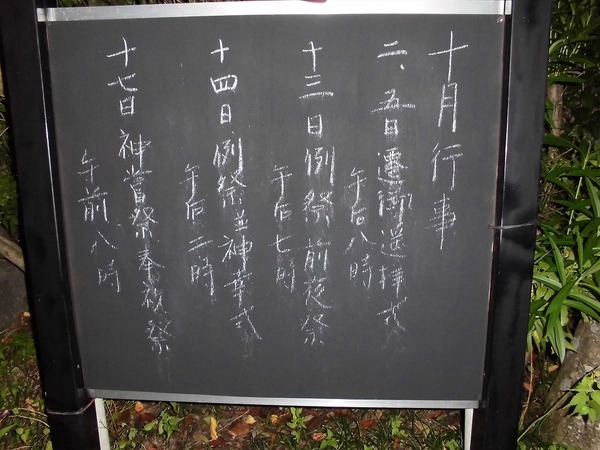 十月行事
二、五日遷御遥拝式
午后八時
十三日例祭前夜祭
午后七時
十四日例祭並神幸式
午后二時
十七日神嘗祭奉祝祭
午前八時